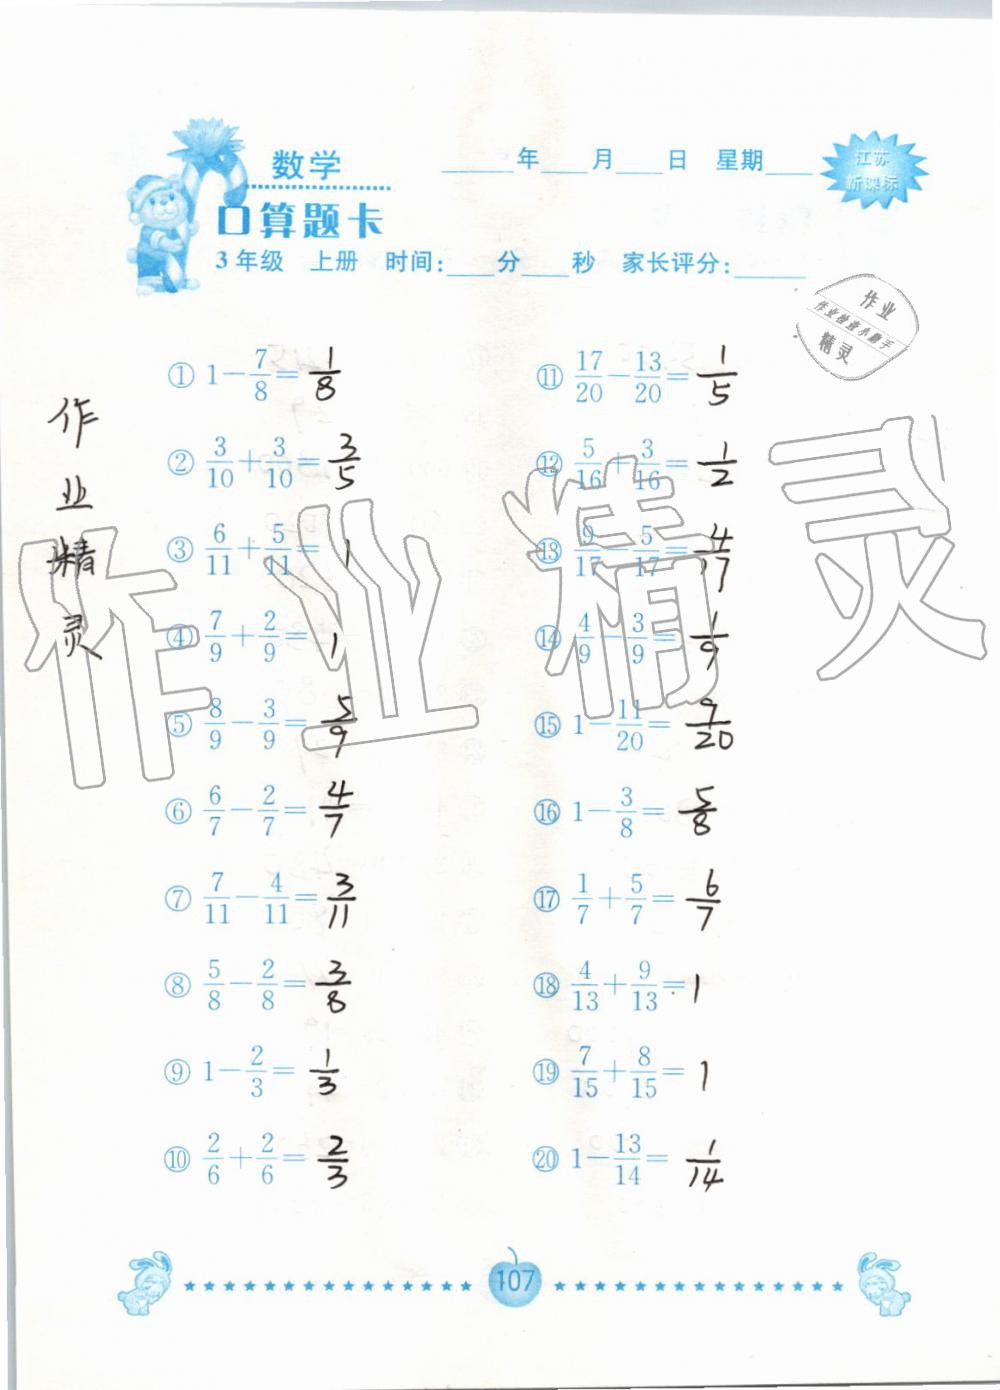 数学
____年____月____日 星期____
江苏
新课标
口算题卡
3年级 上册 时间:____分____秒 家长评分:____
作业
作业检查小助手
精灵
作业精灵
作业精灵
① 1-7/8=1/8
② 3/10+3/10=3/5
③ 6/11+5/11=1
④ 7/9+2/9=1
⑤ 8/9-3/9=5/9
⑥ 6/7-2/7=4/7
⑦ 7/11-4/11=3/11
⑧ 5/8-2/8=3/8
⑨ 1-2/3=1/3
⑩ 2/6+2/6=2/3
⑪ 17/20-13/20=1/5
⑫ 5/16+3/16=1/2
⑬ 9/17-5/17=4/17
⑭ 4/9-3/9=1/9
⑮ 1-11/20=9/20
⑯ 1-3/8=5/8
⑰ 1/7+5/7=6/7
⑱ 4/13+9/13=1
⑲ 7/15+8/15=1
⑳ 1-13/14=1/14
107